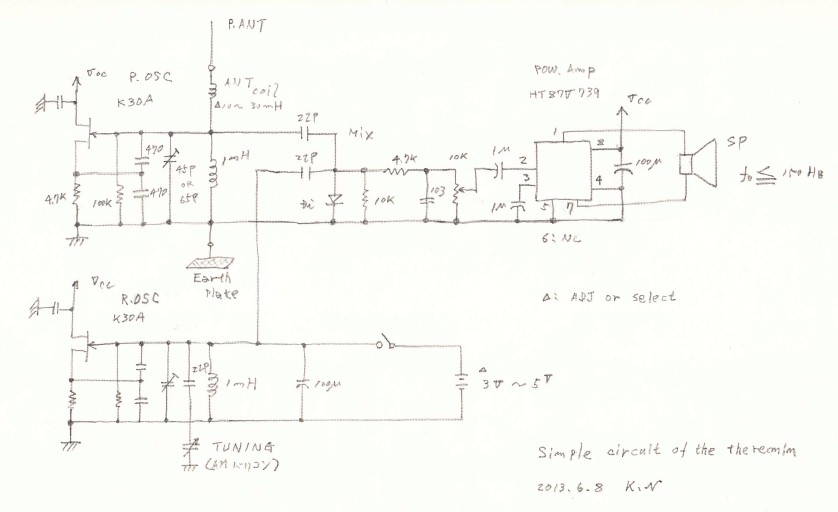 P.ANT
Vcc
P.OSC
K30A
ANT
coil
22P
Mix
470
470
45P
OR
65P
1mH
22P
4.7K
100K
Di
10K
4.7K
103
10K
1M
1M
POW. Amp
HT87V739
Vcc
1
2
3
4
5
7
8
100μ
6: NC
SP
Earth
Plate
Vcc
R.OSC
K30A
22P
1mH
100μ
Δ
3V ~ 5V
TUNING
Δ: ADJ or select
Simple circuit of the theremin
2013. 6. 8 K.N